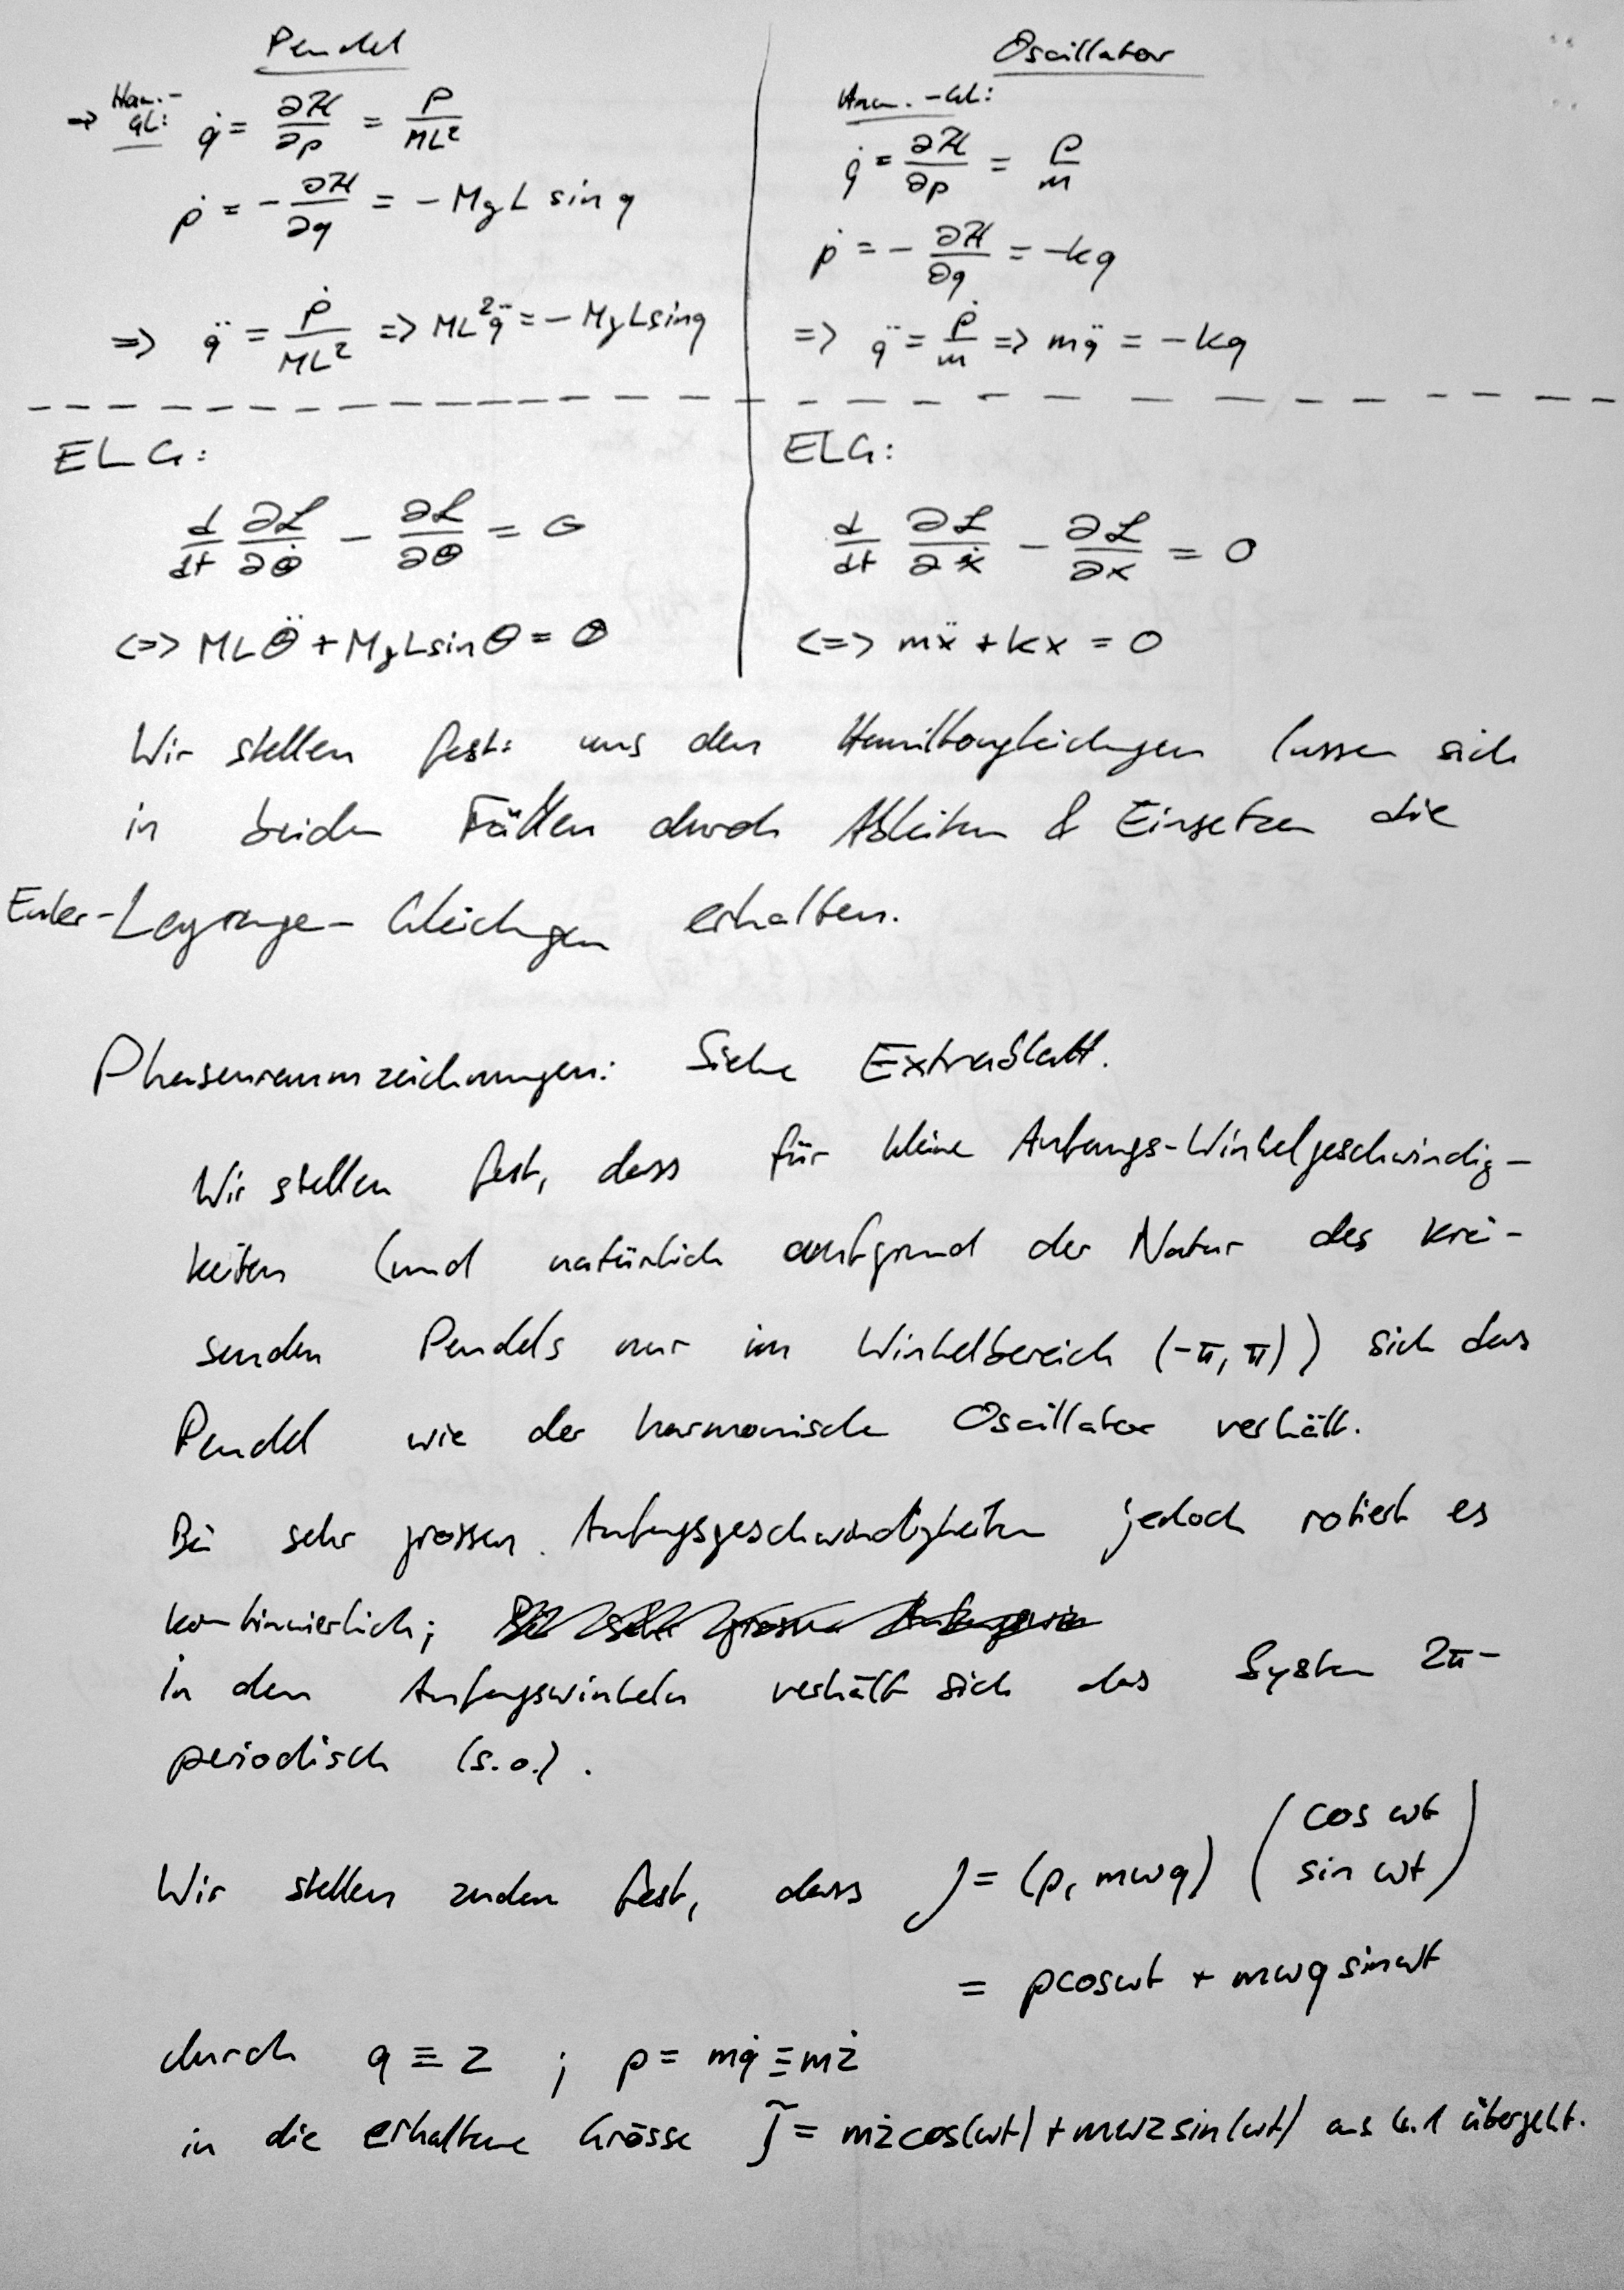 Pendel
→ Ham.-Gl: q̇ = ∂H/∂p = p/ML²
ṗ = -∂H/∂q = -MgL sin q
=> q̈ = ṗ/ML² => ML²q̈ = -MgL sin q
Oscillator
Ham.-Gl:
q̇ = ∂H/∂p = p/m
ṗ = -∂H/∂q = -kq
=> q̈ = ṗ/m => mq̈ = -kq
ELG:
d/dt ∂L/∂Θ̇ - ∂L/∂Θ = 0
<=> MLΘ̈ + MgL sin Θ = 0
ELG:
d/dt ∂L/∂ẋ - ∂L/∂x = 0
<=> mẍ + kx = 0
Wir stellen fest: aus den Hamiltongleichungen lassen sich
in beiden Fällen durch Ableiten & Einsetzen die
Euler-Lagrange-Gleichungen erhalten.
Phasenraumzeichnungen: Siehe Extrablatt.
Wir stellen fest, dass für kleine Anfangs-Winkelgeschwindig-
keiten (und natürlich aufgrund der Natur des krei-
senden Pendels nur im Winkelbereich (-π, π)) sich das
Pendel wie der harmonische Oscillator verhält.
Bei sehr grossen Anfangsgeschwindigkeiten jedoch rotiert es
kontinuierlich;
in den Anfangswinkeln verhält sich das System 2π-
periodisch (s.o.).
Wir stellen zudem fest, dass J = (p, mωq) (cos ωt
sin ωt)
= p cos ωt + mωq sin ωt
durch q ≡ z ; p = mq̇ ≡ mż
in die erhaltene Grösse J̃ = mż cos(ωt) + mωz sin(ωt) aus 6.1 übergeht.